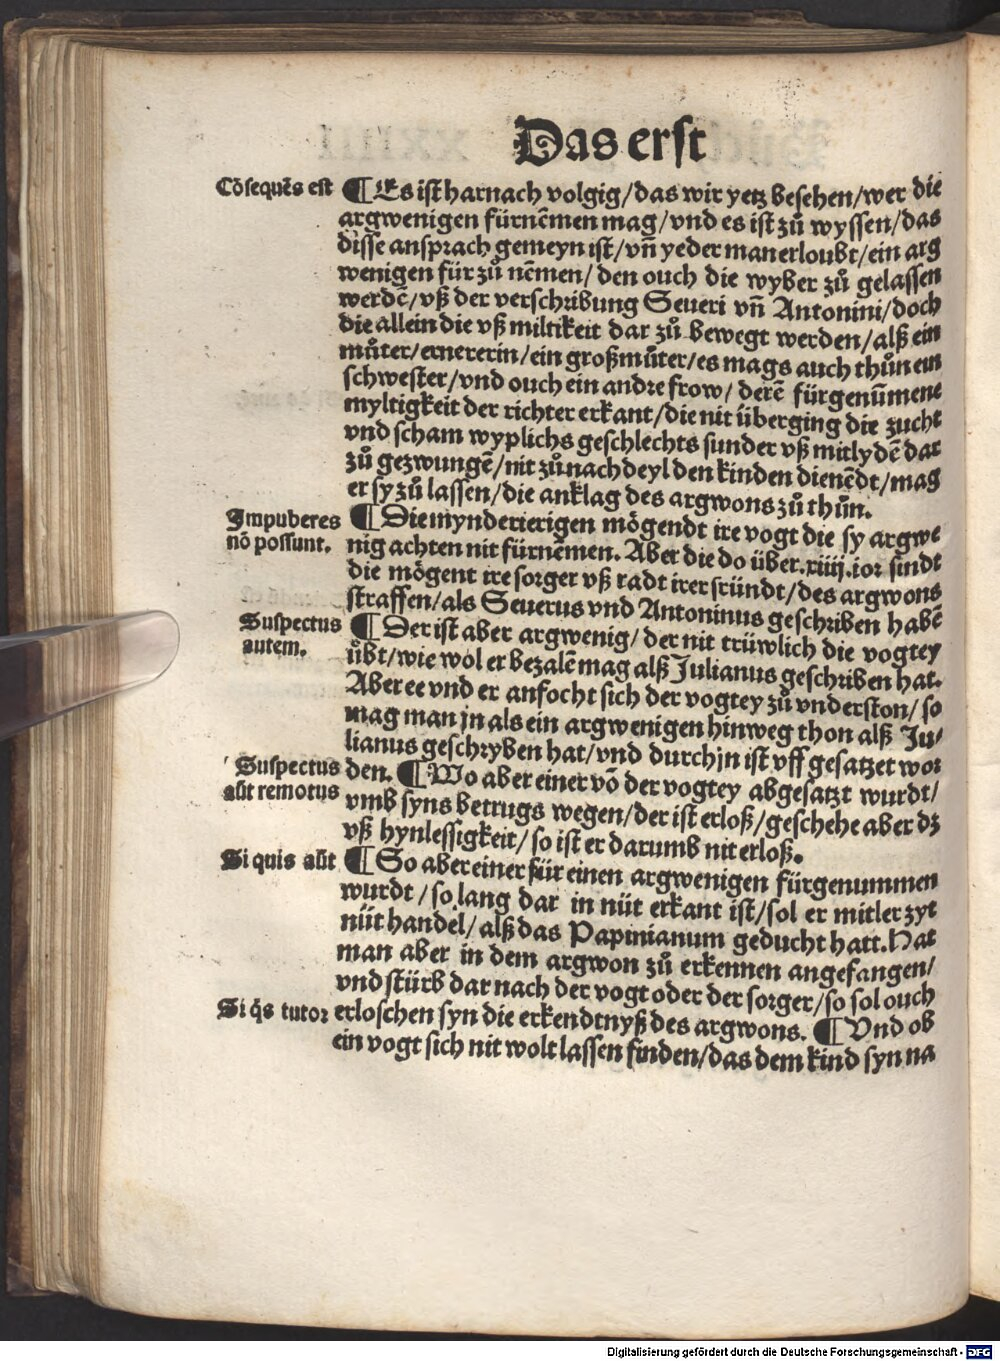 Das erst
Cõsequẽs est ¶ Es ist harnach volgig/das wir yetz besehen/wer die
argwenigen fürnẽmen mag/vnd es ist zů wyssen/das
disse ansprach gemeyn ist/vñ yeder man erloubt/ein arg
wenigen für zů nẽmen/den ouch die wyber zů gelassen
werdẽ/vß der verschribung Seueri vñ Antonini/doch
die allein die vß miltikeit dar zů bewegt werden/alß ein
můter/ernererin/ein großmůter/es mags auch thůn ein
schwester/vnd ouch ein andre frow/derẽ fürgenũmene
myltigkeit der richter erkant/die nit überging die zucht
vnd scham wyplichs geschlechts sunder vß mitlydẽ dar
zů gezwungẽ/nit zů nachdeyl den kinden dienẽdt/mag
er sy zů lassen/die anklag des argwons zů thůn.
Impuberes ¶ Die mynderierigen mögendt ire vogt die sy argwe
nõ possunt. nig achten nit fürnẽmen. Aber die do über .xiiij. ior sindt
die mögent ire sorger vß radt irer fründt/des argwons
straffen/als Seuerus vnd Antoninus geschriben habẽ
Suspectus ¶ Der ist aber argwenig/der nit trüwlich die vogtey
autem. übt/wie wol er bezalẽ mag alß Julianus geschriben hat.
Aber ee vnd er anfocht sich der vogtey zů vnderston/so
mag man jn als ein argwenigen hinweg thon alß Ju/
lianus geschryben hat/vnd durch jn ist vff gesatzet wor
Suspectus den. ¶ Wo aber einer võ der vogtey abgesatzt wurdt/
aũt remotus vmb syns betrugs wegen/der ist erloß/geschehe aber dz
vß hynlessigkeit/so ist er darumb nit erloß.
Si quis aũt ¶ So aber einer für einen argwenigen fürgenummen
wurdt/so lang dar in nüt erkant ist/sol er mitler zyt
nüt handel/alß das Papinianum geducht hatt. Hat
man aber in dem argwon zů erkennen angefangen/
vnd stürb dar nach der vogt oder der sorger/so sol ouch
Si q̃s tutor erloschen syn die erkendtnyß des argwons. ¶ Vnd ob
ein vogt sich nit wolt lassen finden/das dem kind syn na
Digitalisierung gefördert durch die Deutsche Forschungsgemeinschaft - DFG